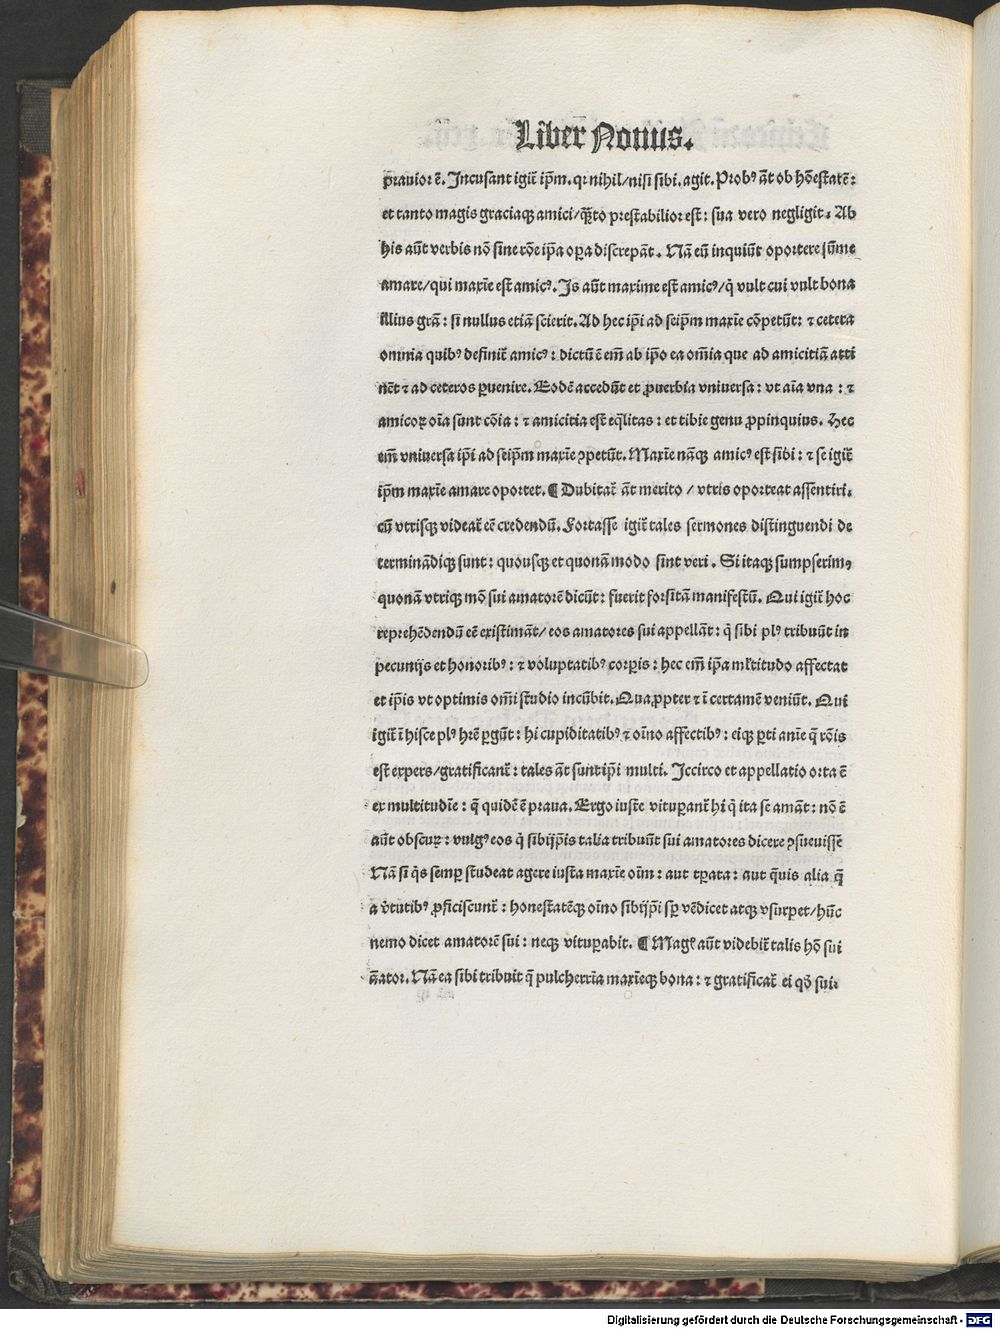 Liber Nonus.
prauior ē. Incusant igit̄ ip̄m. qꝛ nihil/nisi sibi. agit. Probꝰ āt ob hōestatē:
et tanto magis graciaqꝫ amici/q̄to prestabilior est: sua vero negligit. Ab
his aūt verbis nō sine rōe ip̄a oꝑa discrepāt. Nā eū inquiūt oportere sūme
amare/qui maxīe est amicꝰ. Is aūt maxime est amicꝰ/q̄ vult cui vult bona
illius grā: si nullus etiā scierit. Ad hec ip̄i ad seip̄m maxīe cōpetūt: ⁊ cetera
omnia quibꝰ definit̄ amicꝰ: dictū ē em̄ ab ip̄o ea om̄ia que ad amicitiā atti
nēt ⁊ ad ceteros ꝑuenire. Eodē accedūt et ꝓuerbia vniuersa: vt aīa vna: ⁊
amicoꝝ oīa sunt cōia: ⁊ amicitia est eq̄litas: et tibie genu ꝓpinquius. Hec
em̄ vniuersa ip̄i ad seip̄m maxīe ꝯpetūt. Maxīe nāqꝫ amicꝰ est sibi: ⁊ se igit̄
ip̄m maxīe amare oportet. ¶ Dubitat̄ āt merito / vtris oporteat assentiri.
cū vtrisqꝫ videat̄ eē credendū. Fortasse igit̄ tales sermones distinguendi de
terminādiqꝫ sunt: quousqꝫ et quonā modo sint veri. Si itaqꝫ sumpserimꝰ
quonā vtriqꝫ mō sui amatorē dicūt: fuerit forsitā manifestū. Qui igit̄ hoc
reprehēdendū eē existimāt/ eos amatores sui appellāt: q̄ sibi plꝰ tribuūt in
pecunijs et honoribꝰ: ⁊ voluptatibꝰ corꝑis: hec em̄ ip̄a ml̄titudo affectat
et ip̄is vt optimis om̄i studio incūbit. Quaꝓpter ⁊ ī certamē veniūt. Qui
igit̄ ī hisce plꝰ hr̄e ꝑgūt: hi cupiditatibꝰ ⁊ oīno affectibꝰ: eiqꝫ ꝑti anīe q̄ rōis
est expers/gratificant̄: tales āt sunt ip̄i multi. Iccirco et appellatio orta ē
ex multitudīe: q̄ quidē ē praua. Ergo iuste vituꝑant̄ hi q̄ ita se amāt: nō ē
aūt obscuꝝ: vulgꝰ eos q̄ sibijp̄is talia tribuūt sui amatores dicere ꝯsueuisse
Nā si q̄s semꝑ studeat agere iusta maxīe oīm: aut tꝑata: aut q̄uis alia q̄
a v̄tutibꝰ ꝓficiscunt̄: honestatēqꝫ oīno sibijp̄i sꝑ vēdicet atqꝫ vsurpet/hūc
nemo dicet amatorē sui: neqꝫ vituꝑabit. ¶ Magꝭ aūt videbit̄ talis hō sui
āator. Nā ea sibi tribuit q̄ pulcherrīa maxīeqꝫ bona: ⁊ gratificat̄ ei qd̄ sui
Digitalisierung gefördert durch die Deutsche Forschungsgemeinschaft - DFG